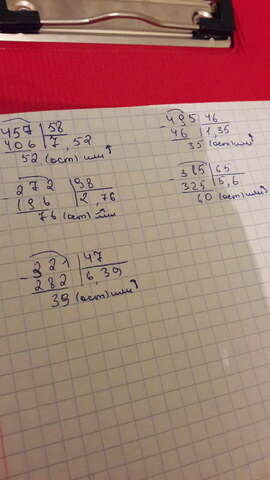 457 | 58
- 406 | 7, 52
52 (ост) или
495 | 46
- 46 | 1, 35
35 (ост) или
272 | 98
- 196 | 2, 76
76 (ост) или
385 | 65
- 325 | 5, 6
60 (ост) или
321 | 47
- 282 | 6, 39
39 (ост) или